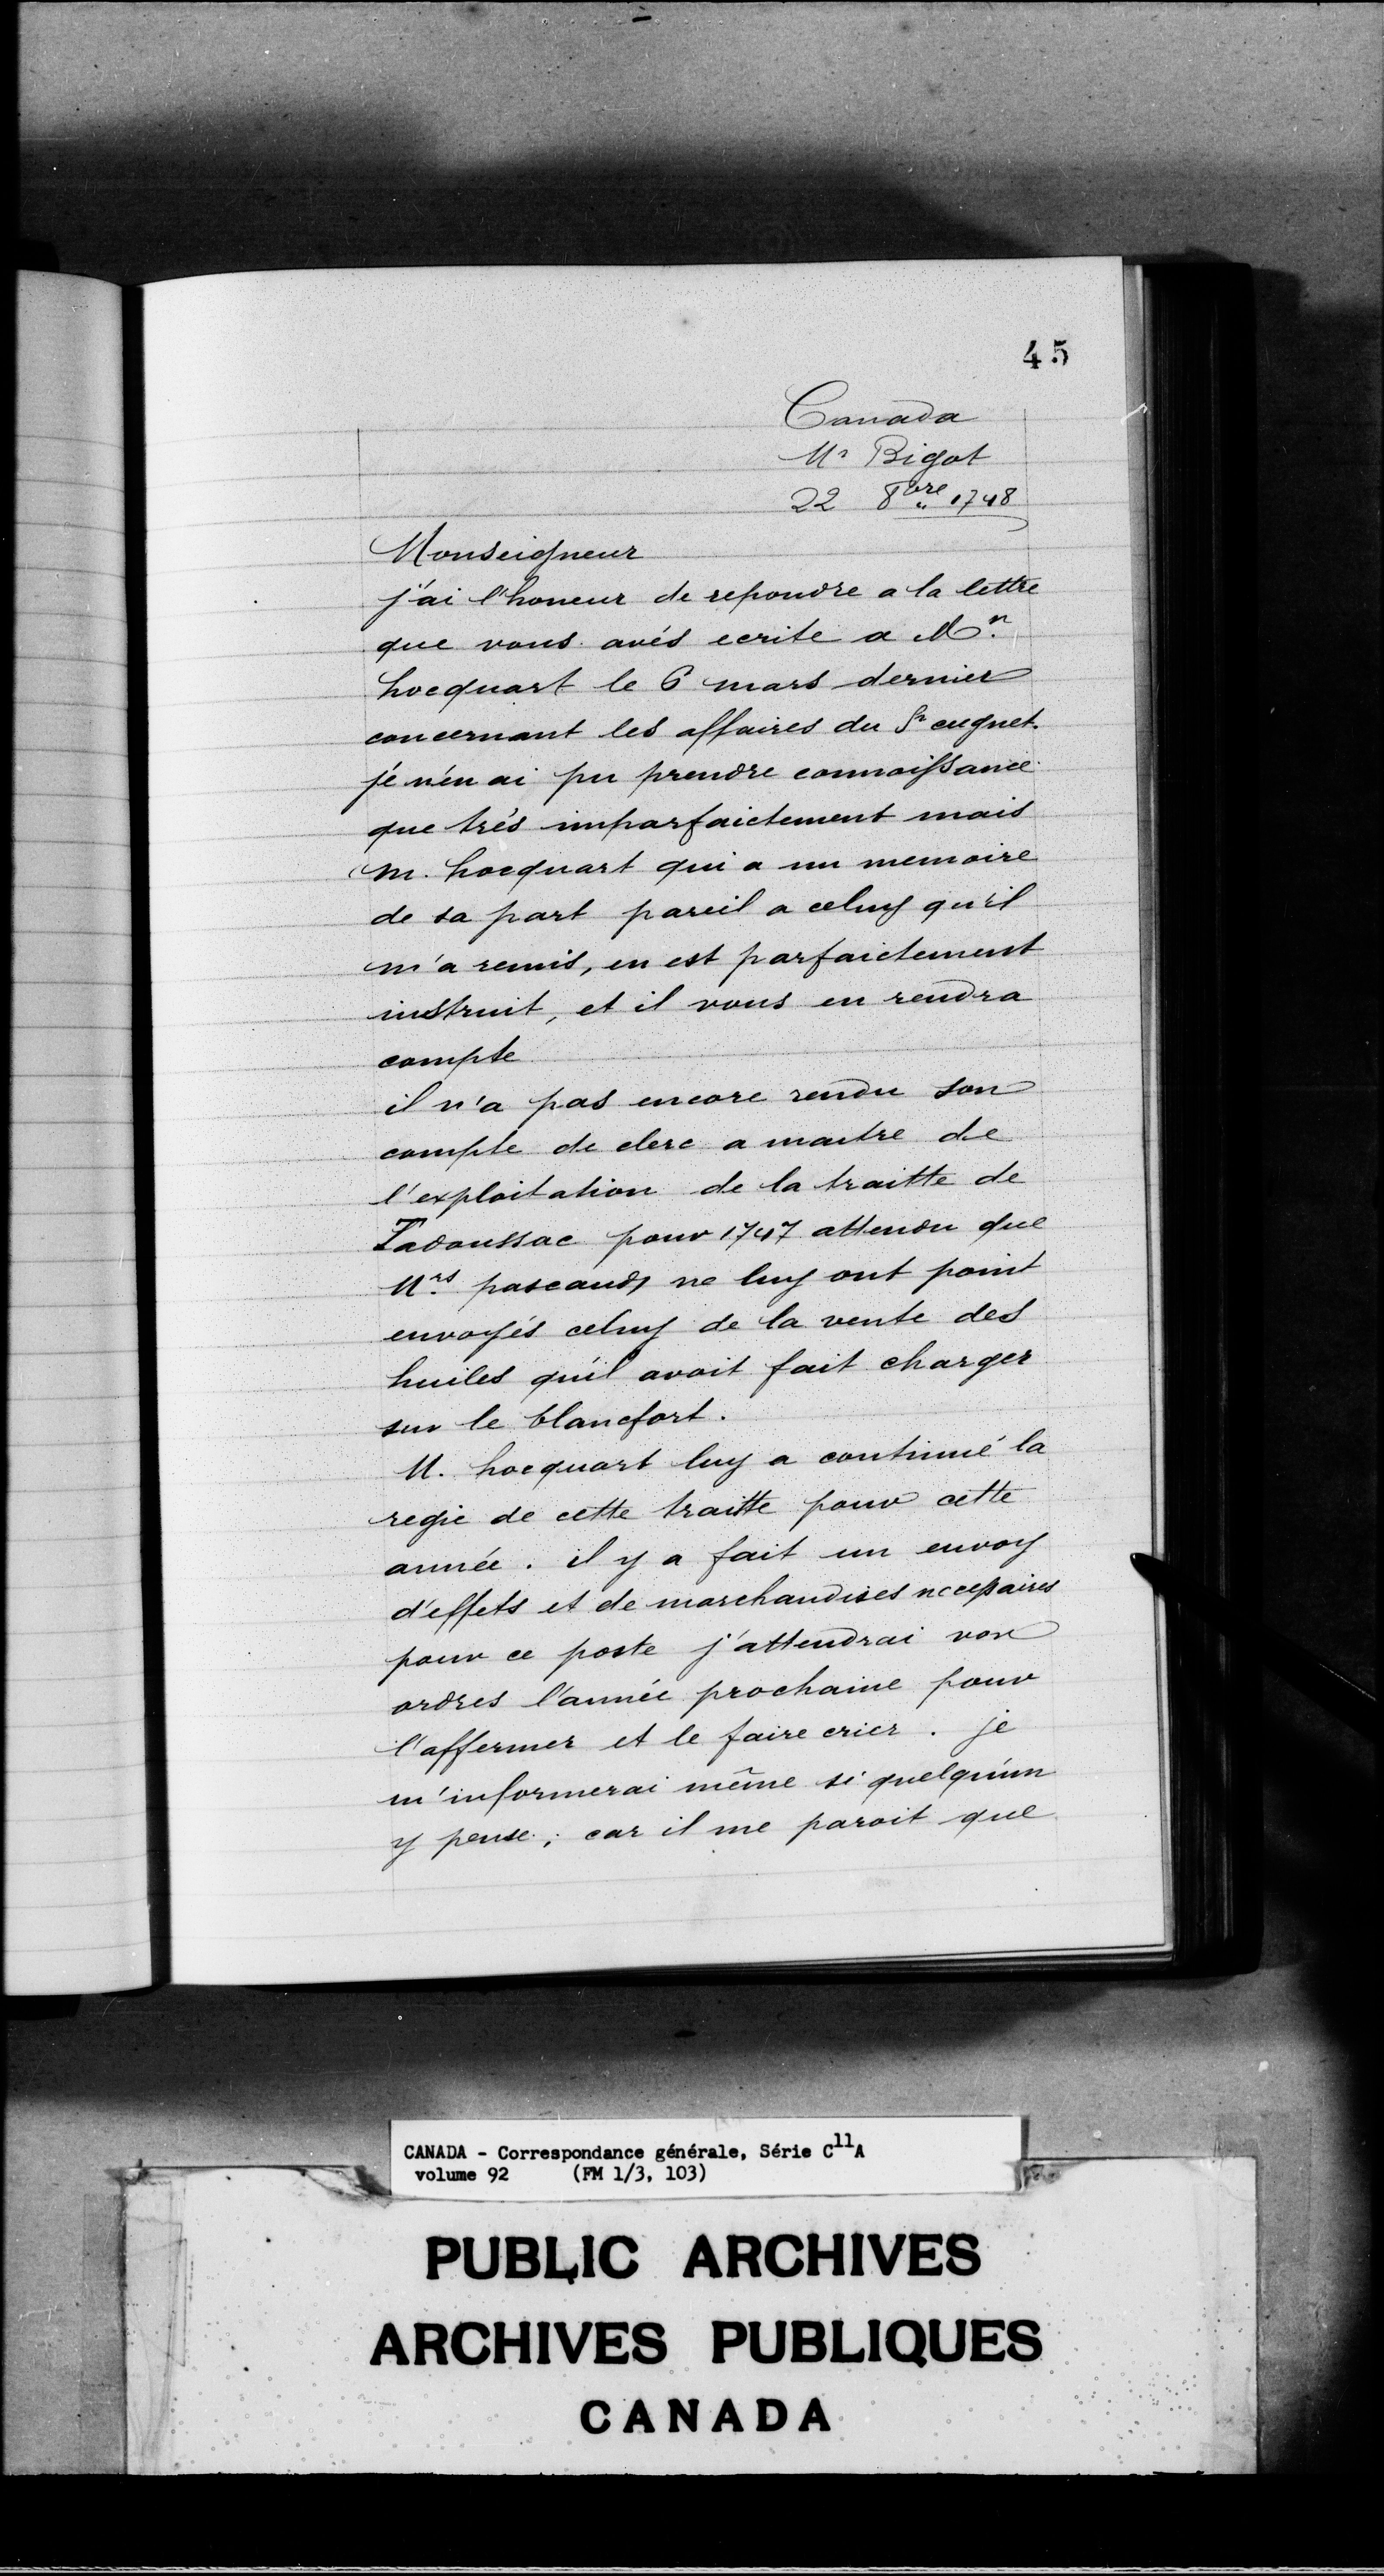 45
Canada
Mr Bigot
22 8bre 1748
Monseigneur
j'ai l'honeur de repondre a la lettre
que vous avés ecrite a Mr.
hocquart le 6 mars dernier
concernant les affaires du Sr cugnet.
jé n'en ai pu prendre connoissance
que trés imparfaictement mais
m. hocquart qui a un memoire
de sa part pareil a celuy qu'il
m'a remis, en est parfaictement
instruit, et il vous en rendra
compte
il n'a pas encore rendu son
compte de clerc a maitre de
l'exploitation de la traitte de
Tadoussac pour 1747 attendu que
Mrs. pascauds ne luy ont point
envoyés celuy de la vente des
huiles qu'il avoit fait charger
sur le blancfort.
M. hocquart luy a continué la
regie de cette traitte pour cette
année. il y a fait un envoy
d'effets et de marchandises necessaires
pour ce poste j'attendrai vos
ordres l'année prochaine pour
l'affermer et le faire crier. je
m'informerai même si quelqu'un
y pense; car il me paroit que
CANADA - Correspondance générale, Série C11A
volume 92 (FM 1/3, 103)
PUBLIC ARCHIVES
ARCHIVES PUBLIQUES
CANADA